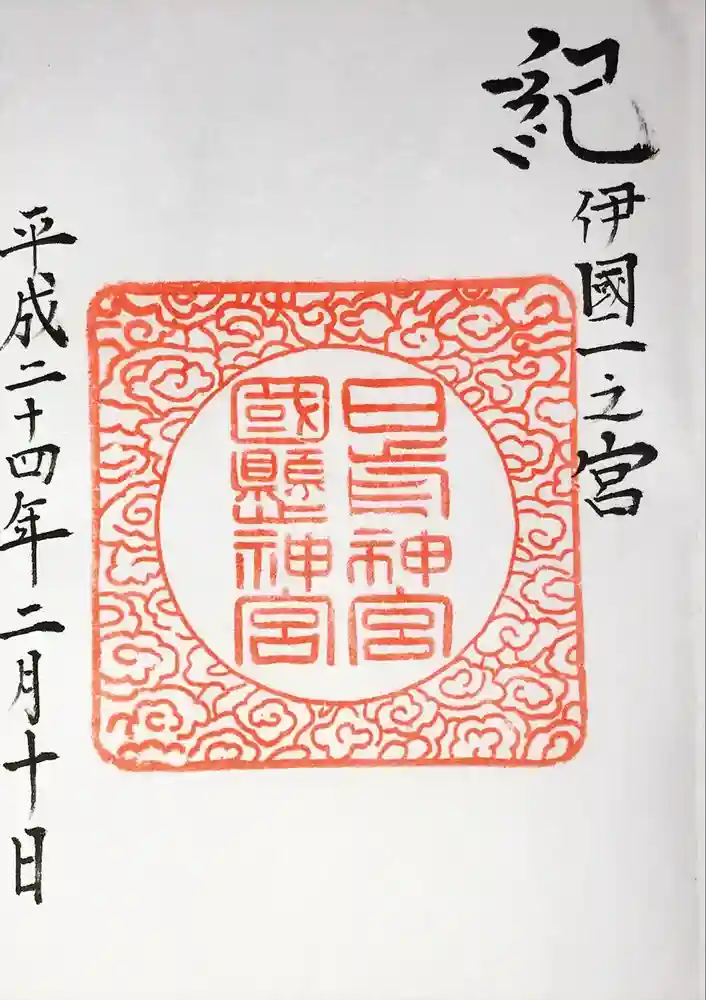 紀伊國一之宮
日前神宮
國懸神宮
平成二十四年二月十日